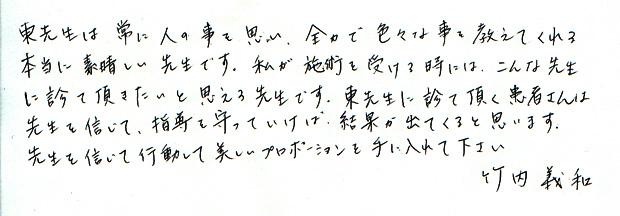 東先生は常に人の事を思い、全力で色々な事を教えてくれる
本当に素晴しい先生です。私が施術を受ける時には、こんな先生
に診て頂きたいと思える先生です。東先生に診て頂く患者さんは
先生を信じて、指導を守っていけば、結果が出てくると思います。
先生を信じて行動して美しいプロポーションを手に入れて下さい
竹内義和